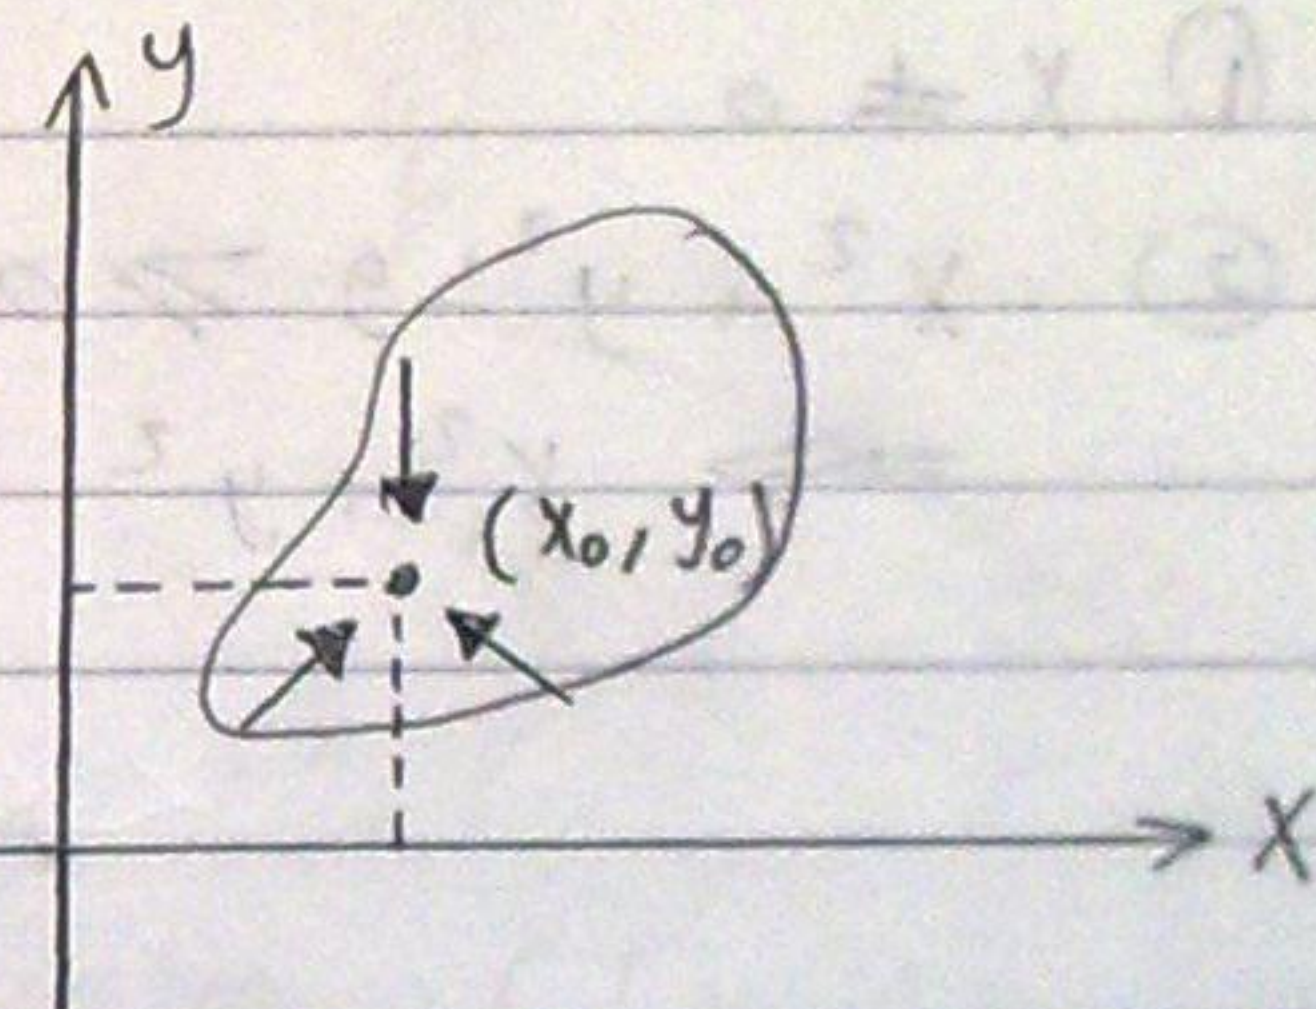 y
(x₀, y₀)
x